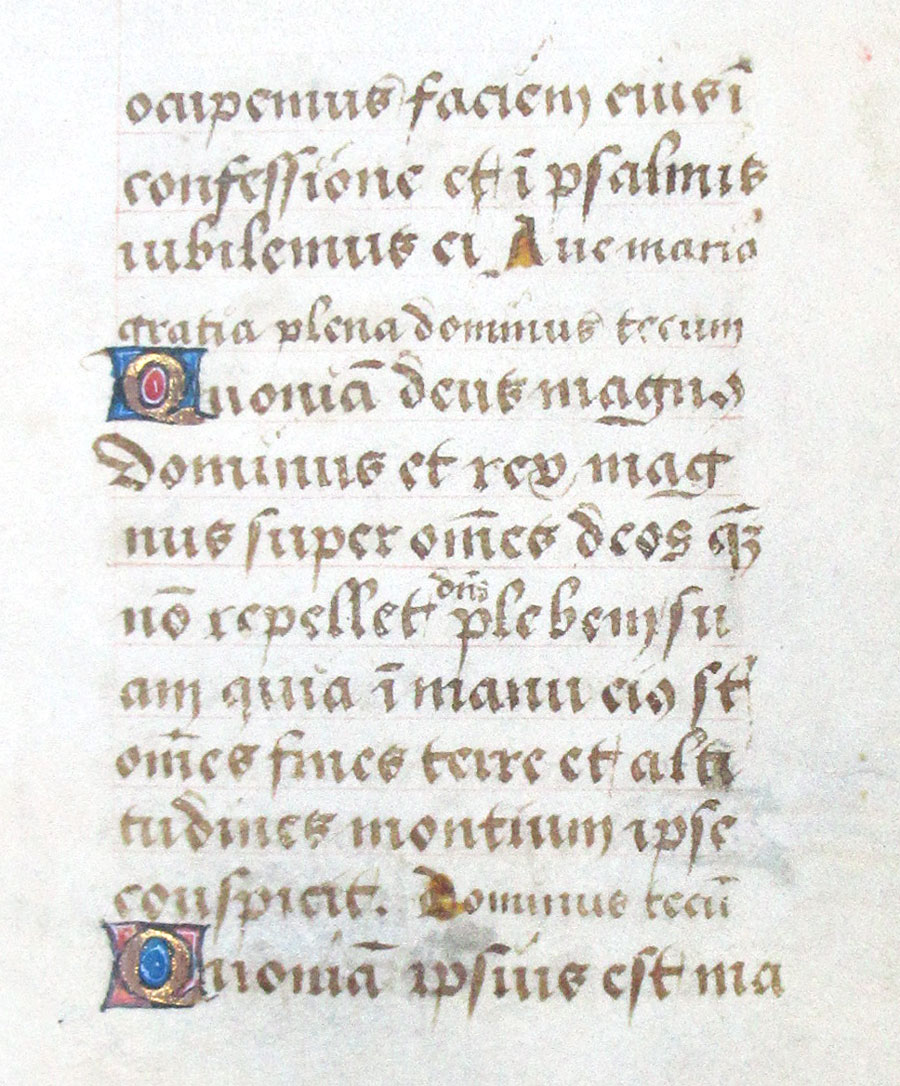 ocupemus faciem eius ī
confessione et ī psalmis
iubilemus ei Aue maria
gratia plena dominus tecum
Quoniā deus magnꝰ
Dominus et rex mag
nus super om̄es deos qm̄
nō repellet dn̄s plebem su
am quia ī manu eiꝰ st̄
om̄es fines terre et alti
tudines montium ipse
conspicit. Dominus tecū
Quoniā ipsius est ma